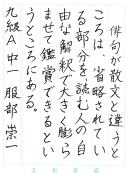 俳句が散文と違うと
ころは、省略されてい
る部分を読む人の自
由な解釈で大きく膨ら
ませて鑑賞できるとい
うところにある。
九級A 中一 服部 崇一